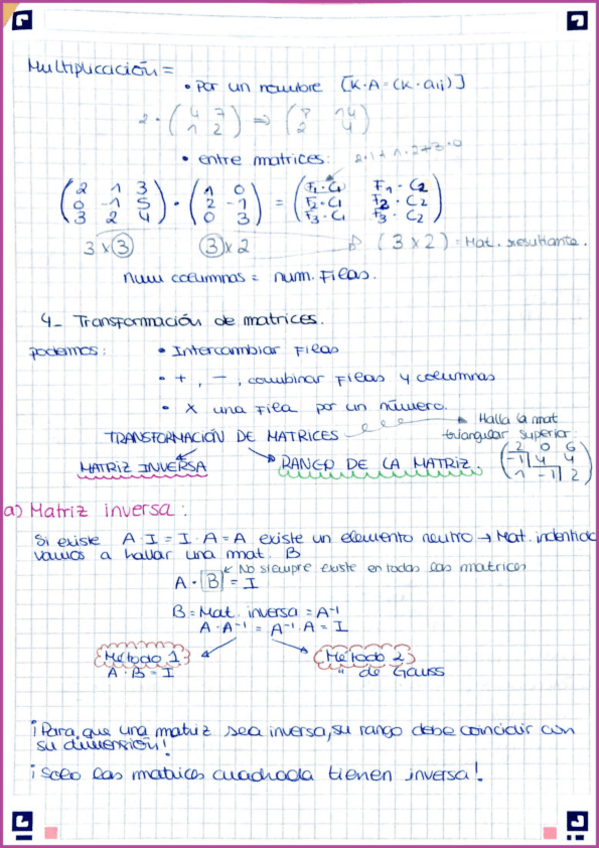 Multiplicación =
• Por un número [K·A = (K·aij)]
2 · ( 4 7 ) ⇒ ( 8 14 )
( 1 2 ) ( 2 4 )
• entre matrices: 2·1+1·2+3·0
( 2 1 3 ) ( 1 0 ) ( F1·C1 F1·C2 )
( 0 -1 5 ) · ( 2 -1 ) = ( F2·C1 F2·C2 )
( 3 2 4 ) ( 0 3 ) ( F3·C1 F3·C2 )
3 x 3 3 x 2 → (3 x 2) = Mat. resultante.
num columnas = num. Filas.
4- Transformación de matrices.
podemos: • Intercambiar Filas
• +, -, combinar Filas y columnas
• X una Fila por un número.
TRANSFORMACIÓN DE MATRICES
Halla la mat
triangular superior
MATRIZ INVERSA RANGO DE LA MATRIZ.
( 2 0 6 )
( -1 4 4 )
( 1 -1 2 )
a) Matriz inversa:
Si existe A·I = I·A = A existe un elemento neutro → Mat. indentidad
vamos a hallar una mat. B
No siempre existe en todas las matrices
A · B = I
B = Mat. inversa = A-1
A · A-1 = A-1 · A = I
Método 1 Método 2
A · B = I " de Gauss
¡Para que una matriz sea inversa, su rango debe coincidir con
su dimensión!
¡Solo las matrices cuadrada tienen inversa!